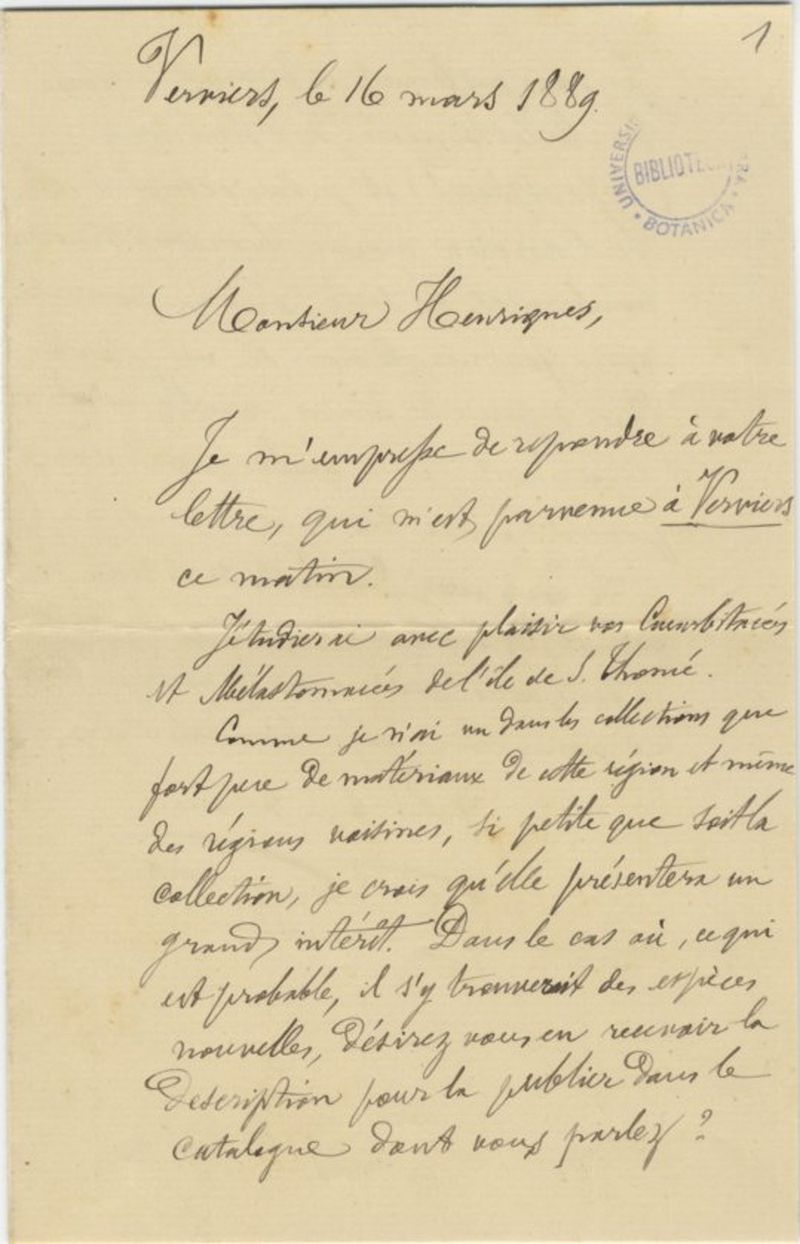 1
Verviers, le 16 mars 1889.
UNIVERSI
BIBLIOTE
BOTANICA
Monsieur Henriques,
Je m'empresse de repondre à votre
lettre, qui m'est parvenue à Verviers
ce matin.
J'étudierai avec plaisir vos Cucurbitacées
et Mélastomacées de l'île de S. Thomé.
Comme je n'ai vu dans les collections que
fort peu de matériaux de cette région et même
des régions voisines, si petite que soit la
collection, je crois qu'elle présentera un
grand intérêt. Dans le cas où, ce qui
est probable, il s'y trouverait des espèces
nouvelles, désirez vous en recevoir la
description pour la publier dans le
catalogue dont vous parlez ?